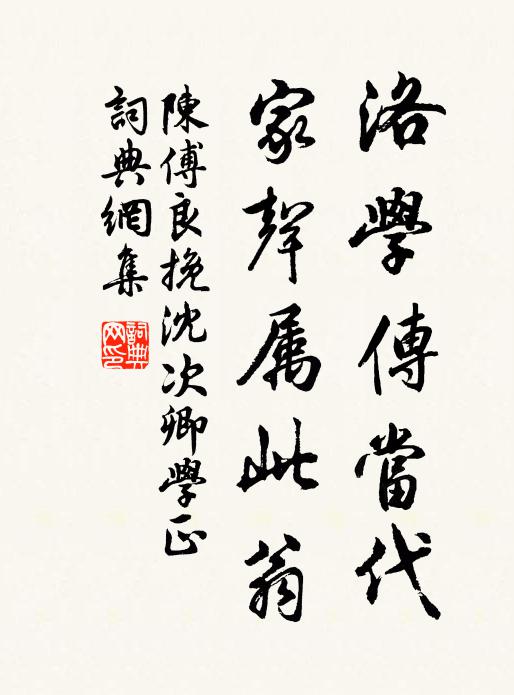 洛學傳當代
家聲属此翁
陳傅良挽沈次卿學正
詞典網集
詞典網印